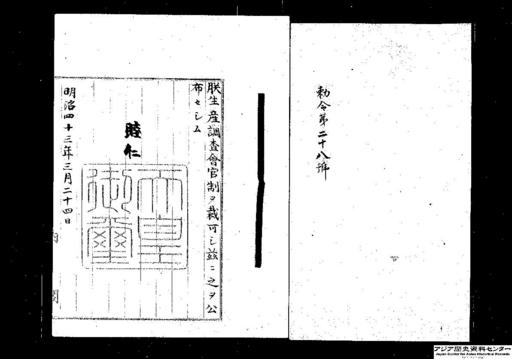 勅令第二十八號
朕生産調査會官制ヲ裁可シ茲ニ之ヲ公
布セシム
睦仁
天皇御璽
明治四十三年三月二十四日
内閣
アジア歴史資料センター
Japan Center for Asian Historical Records